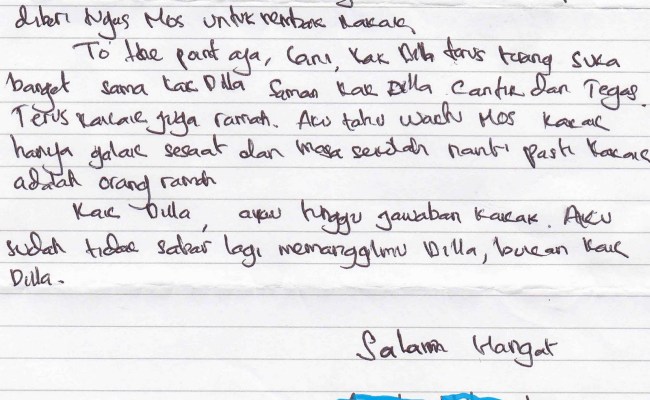 diberi tugas Mos untuk nembak kakak
To the point aja, Kak Dilla terus terang suka
banget sama kak Dilla Kak Dilla Cantik dan Tegas.
Terus kakak juga ramah. Aku tahu waktu Mos kakak
hanya galak sesaat dan masa sekolah nanti pasti kakak
adalah orang ramah
Kak Dilla, tunggu jawaban kakak. Aku
sudah tidak sabar lagi memanggilmu Dilla, bukan kak
Dilla.
Salam Hangat